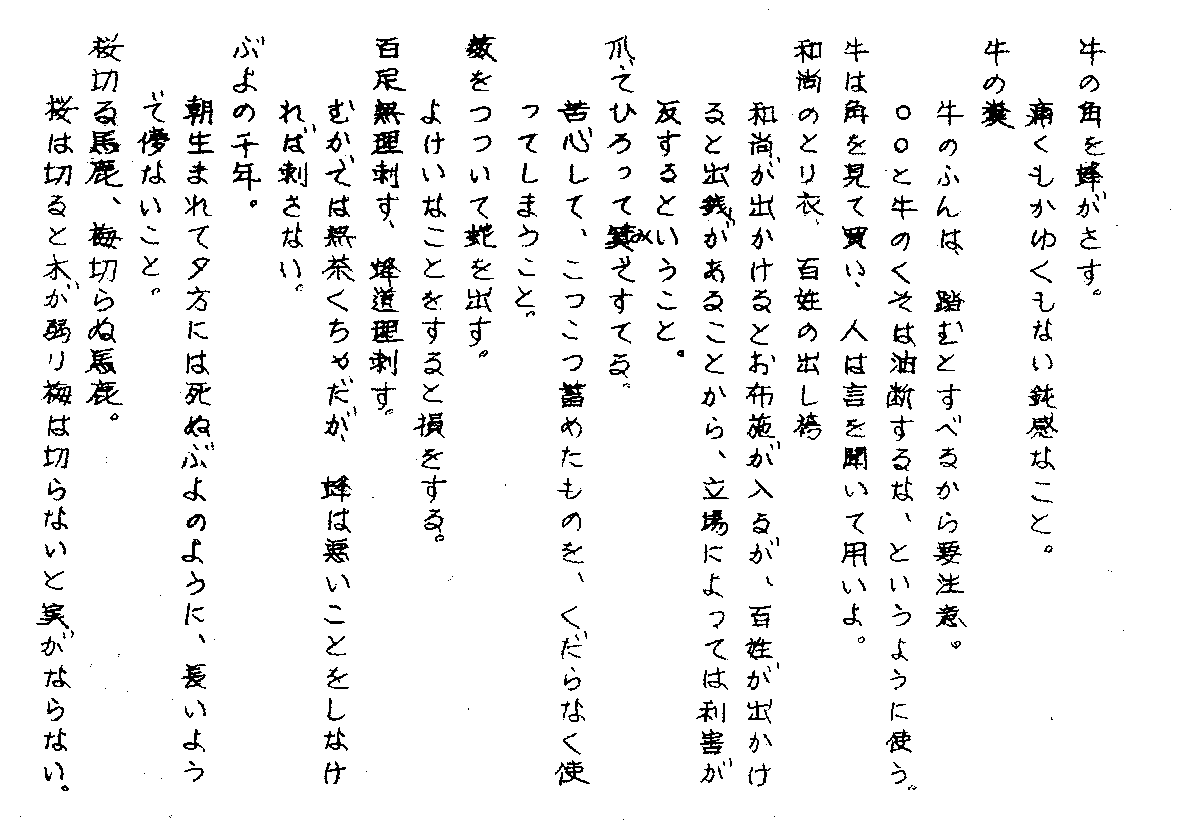 牛の角を蜂がさす。
痛くもかゆくもない鈍感なこと。
牛の糞
牛のふんは、踏むとすべるから要注意。
○○と牛のくそは油断するな、というように使う。
牛は角を見て買い、人は言を聞いて用いよ。
和尚のとり衣、百姓の出し袴
和尚が出かけるとお布施が入るが、百姓が出かけ
ると出銭があることから、立場によっては利害が
反するということ。
爪でひろって箕みですてる。
苦心して、こつこつ蓄めたものを、くだらなく使
ってしまうこと。
薮をつついて蛇を出す。
よけいなことをすると損をする。
百足無理刺す、蜂道理刺す。
むかでは無茶くちゃだが、蜂は悪いことをしなけ
れば刺さない。
ぶよの千年。
朝生まれて夕方には死ぬぶよのように、長いよう
で優ないこと。
桜切る馬鹿、梅切らぬ馬鹿。
桜は切ると木が弱り梅は切らないと実がならない。